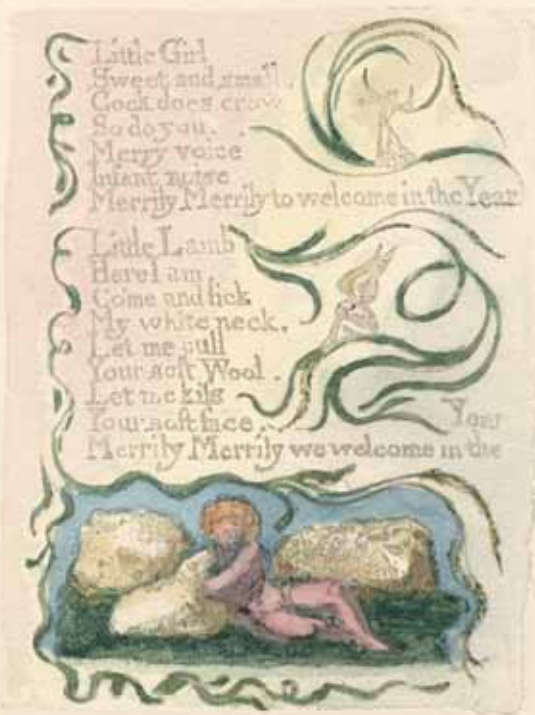 Little Girl
Sweet and small.
Cock does crow
So do you.
Merry voice
Infant noise
Merrily Merrily to welcome in the Year
Little Lamb
Here I am
Come and lick
My white neck.
Let me pull
Your soft Wool.
Let me kiss
Your soft face.
Merrily Merrily we welcome in the
Year